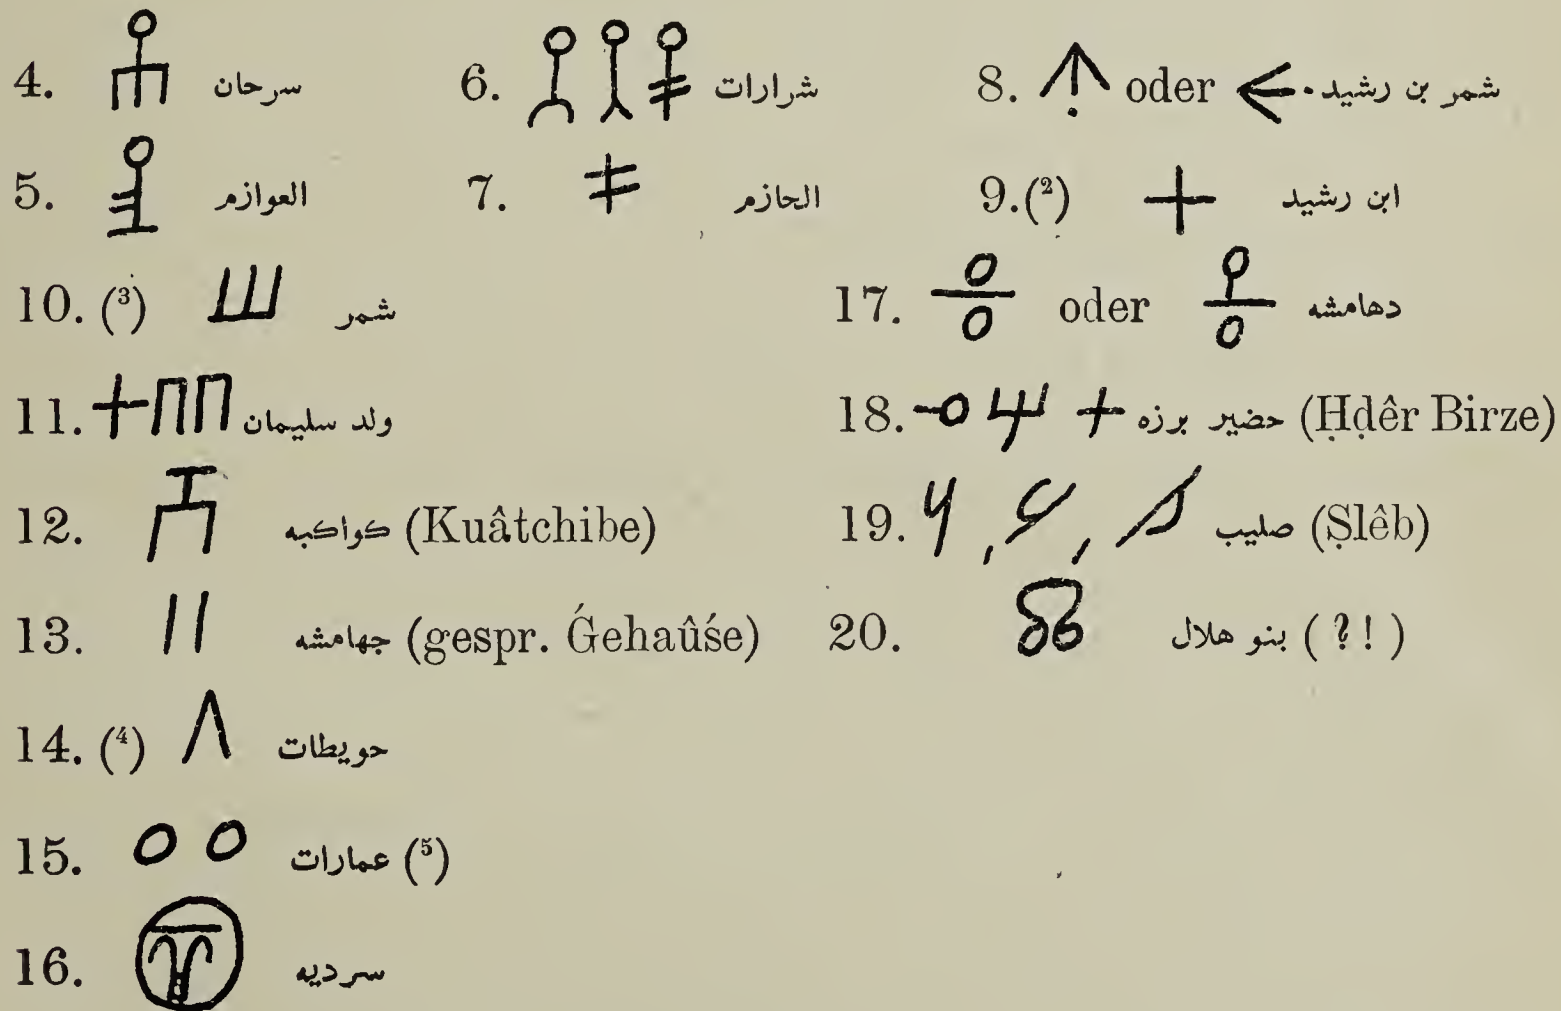 4. سرحان 6. شرارات 8. oder شمر بن رشيد
5. العوازم 7. الحازم 9.(²) ابن رشيد
10. (³) شمر 17. oder دهامشه
11. ولد سليمان 18. حضير برزه (Ḥḍêr Birze)
12. كواكبه (Kuâtchibe) 19. صليب (Ṣlêb)
13. جهامشه (gespr. Ǵehaûśe) 20. بنو هلال (?!)
14. (⁴) حويطات
15. عمارات (⁵)
16. سرديه